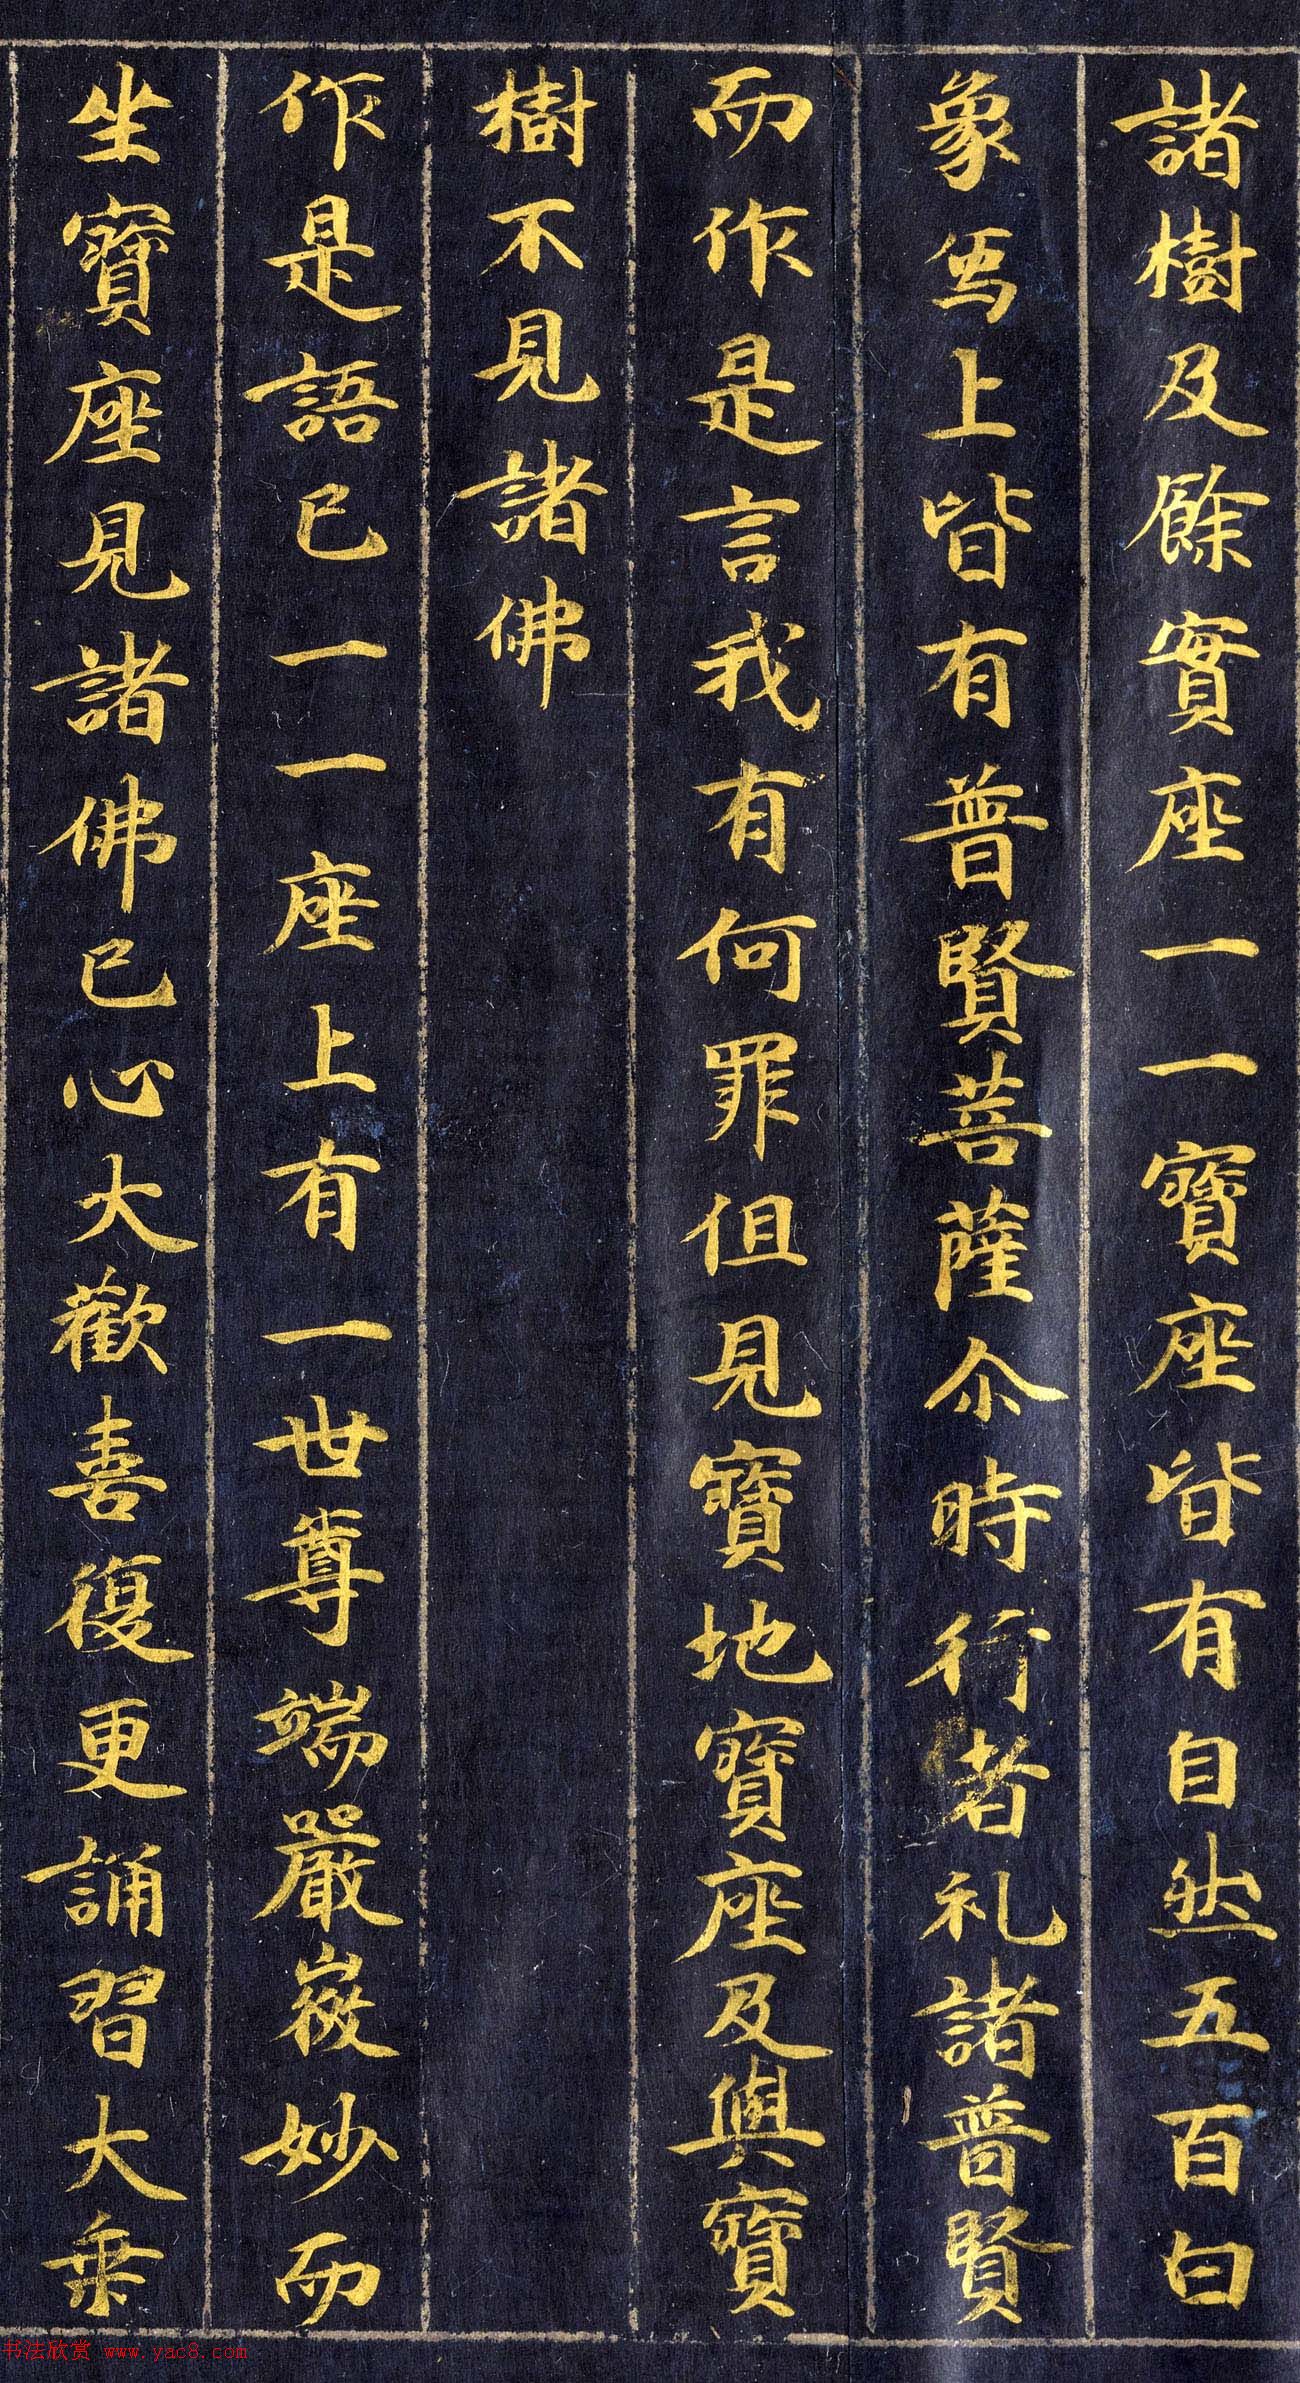 諸樹及餘寳座一一寳座皆有自然五百白
象馬上皆有普賢菩薩尒時行者礼諸普賢
而作是言我有何罪但見寳地寳座及與寳
樹不見諸佛
作是語已一一座上有一世尊端嚴㣲妙而
坐寳座見諸佛已心大歡喜復更誦習大乗
书法欣赏 www.yac8.com